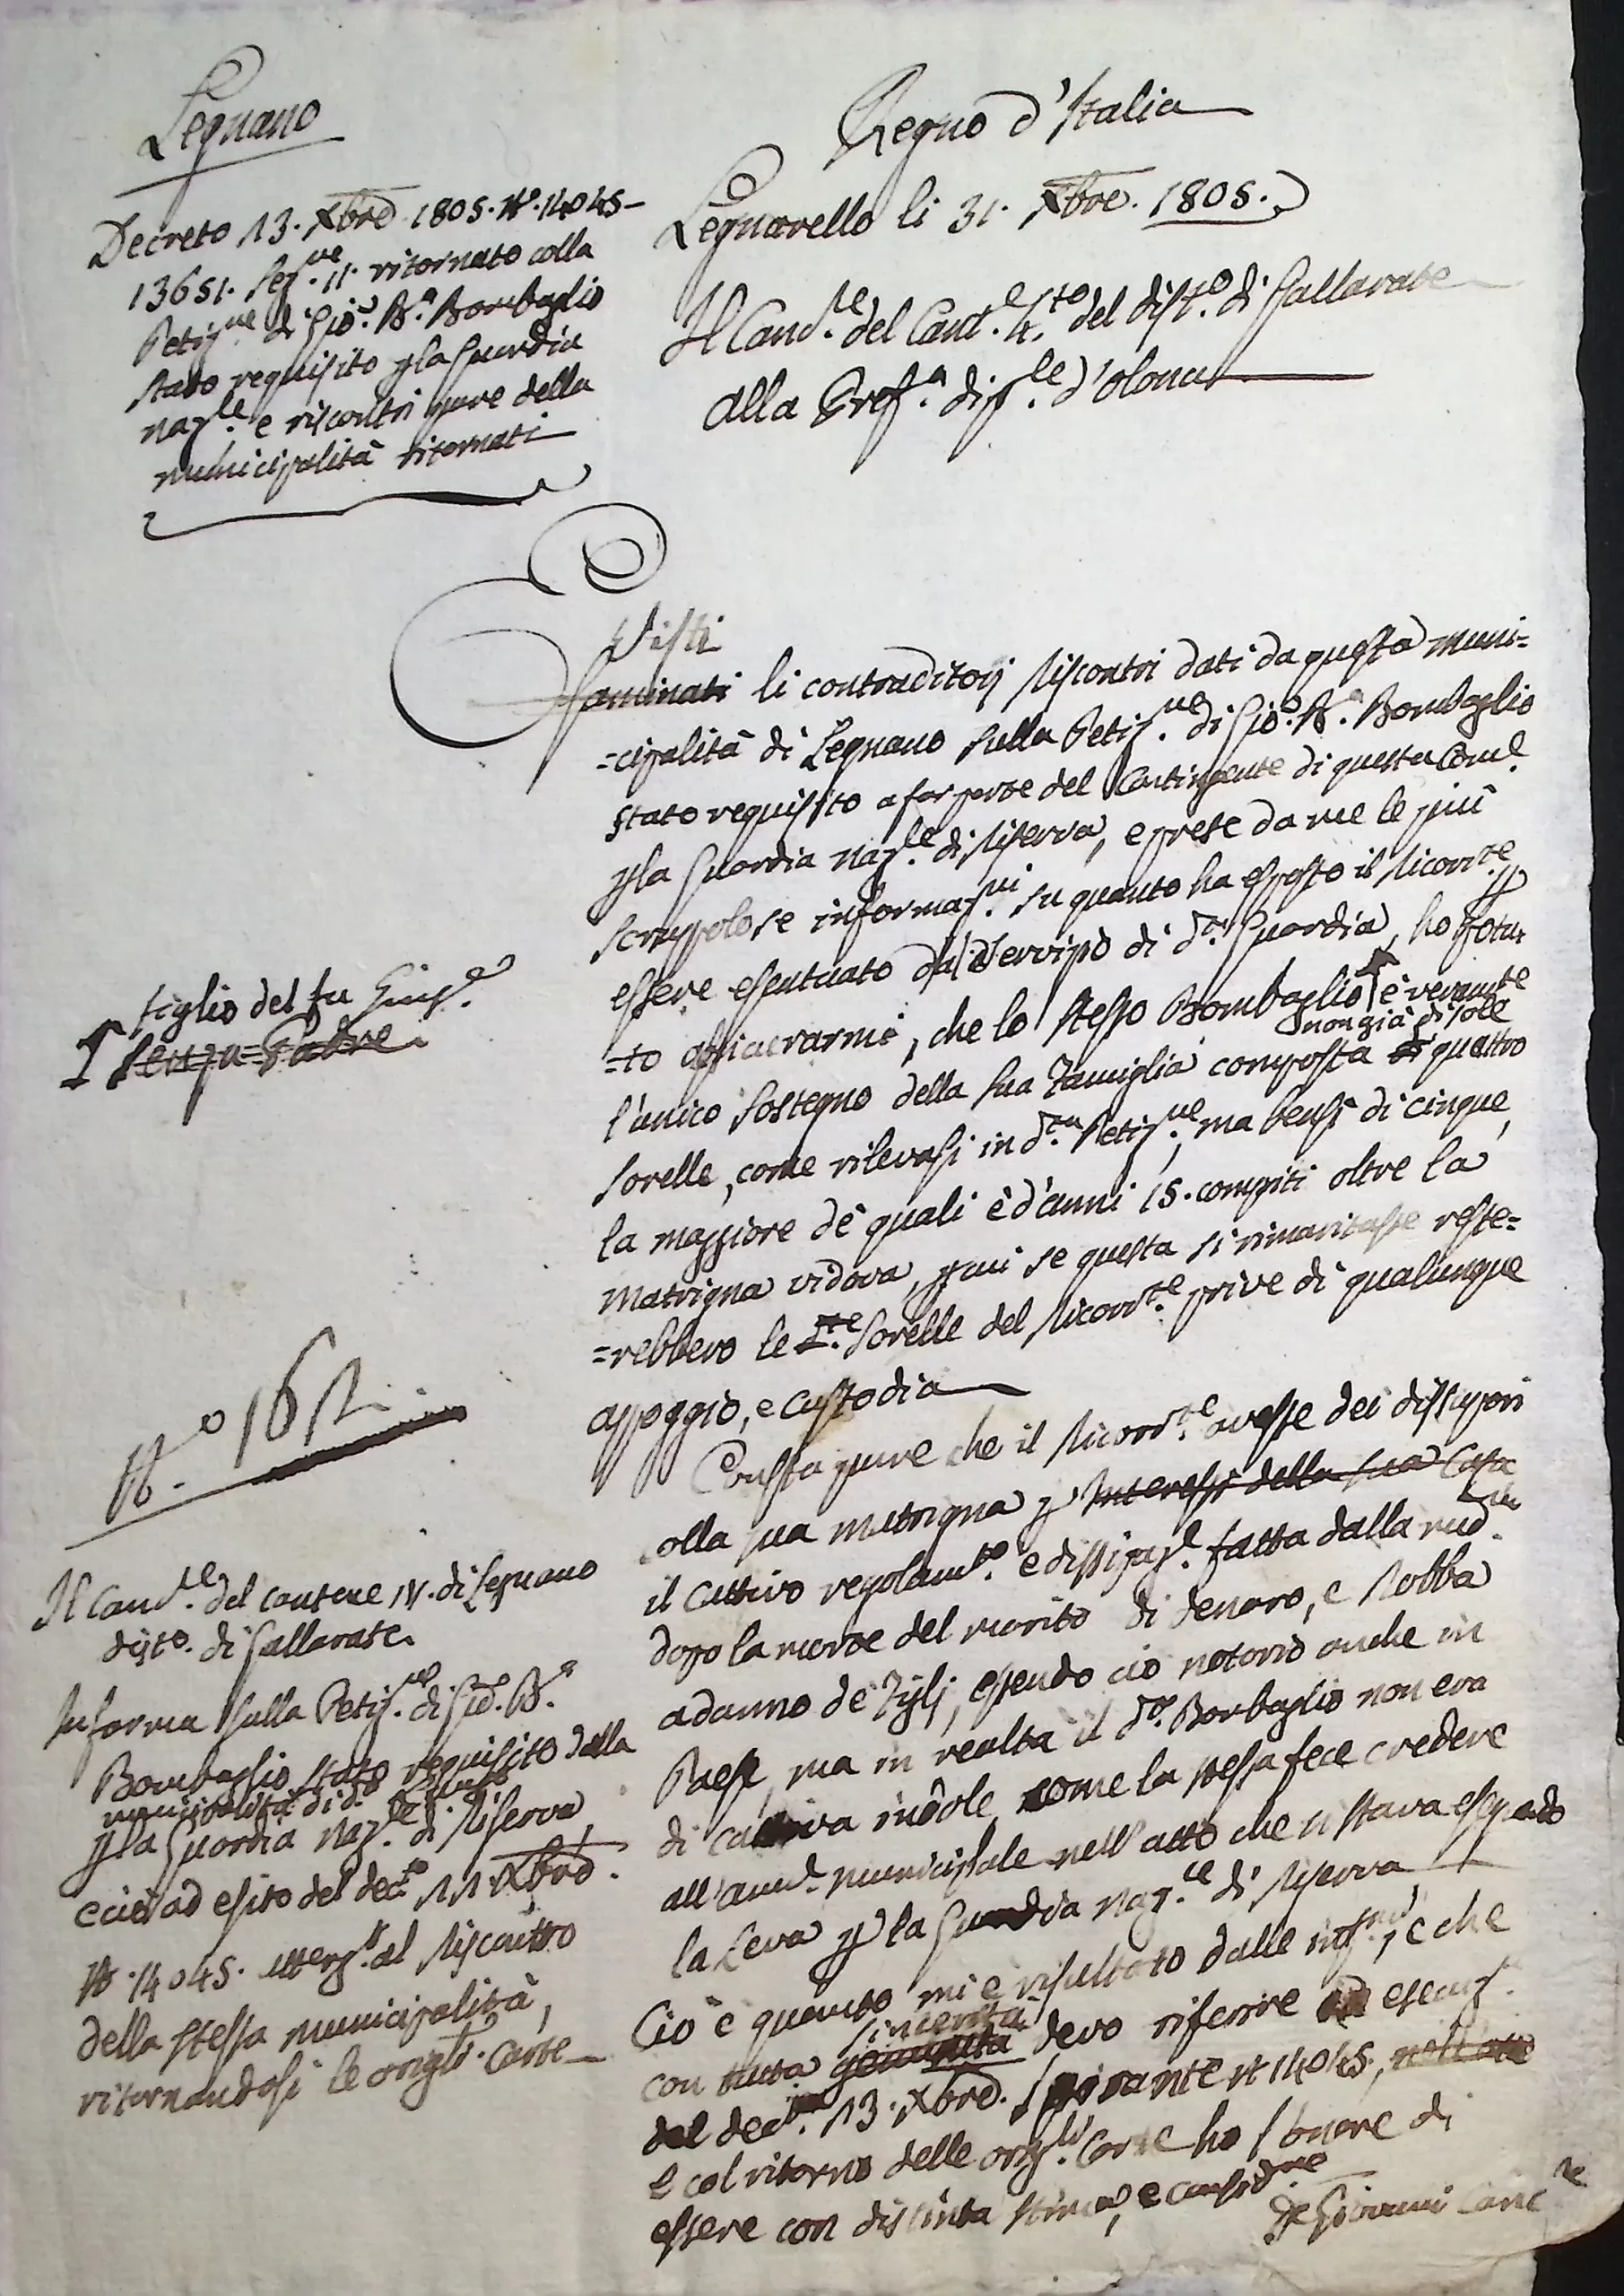 Legnano
Decreto 13. Xbre 1805. N°. 14045-
13651. Sez.ne 11. ritornato colla
Petiz.ne di Gio. B.a Bombaglio
stato requisito p la Guardia
naz.le e riscontri pure della
municipalità ritornati
Regno d'Italia
Legnarello li 31. Xbre. 1805.
Il Canc.re del Cant.e 4.to del dist.o di Gallarate
alla Pref.a dip.le d'olona
Visti
Esaminati li contraditorj riscontri dati da questa muni=
=cipalità di Legnano sulla Petiz.ne di Gio. B.a Bombaglio
stato requisito a far parte del Contingente di questa Com.e
p la Guardia naz.le di riserva, e prese da me le più
scrupolose informaz.ni su quanto ha esposto il ricorr.te p
essere esentuato dal servizio di d.a Guardia, ho potu
=to assicurarmi, che lo stesso Bombaglio è veram.te
figlio del fu Giusp.e
senza Padre.
non già di sole
l'unico sostegno della sua famiglia composta di quattro
sorelle, come rilevasi in d.ta Petiz.ne, ma bensì di cinque,
la maggiore de' quali è d'anni 15. compiti oltre la
matrigna vidova, p cui se questa si rimaritasse reste=
=rebbero le d.te sorelle del ricorr.te prive di qualunque
appoggio, e custodia
Consta pure che il ricorr.te avesse dei dissapori
colla sua matrigna p interessi della sua Casa
il cattivo regolam.to e dissipaz.e fatta dalla med.ma
dopo la morte del marito di denaro, e robba
a danno de' figlj, essendo ciò notorio anche in
Paese, ma in realtà il d.o Bombaglio non era
di cattiva indole, come la stessa fece credere
all'am.e municipale nell'atto che si stava eseguendo
la Leva p la Guardia naz.le di riserva
Ciò è quanto mi è risultato dalle inf.ni, e che
sincerità
con tutta devo riferire in esecuz.
del dec.to 13. Xbre. spirante N 14045, nell'atto
e col ritorno delle orig.li Carte ho l'onore di
essere con distinta stima, e considz.ne
De Giovanni Canc.re
N.o 161
Il Canc.re del cantone IV. di Legnano
disto. di Gallarate.
Informa sulla Petiz.ne di Gio. B.a
Bombaglio stato requisito dalla
municipalità di d.o
p la Guardia naz.le di riserva,
e ciò ad esito del dec.to 11 Xbre.
N. 14045. al riscontro
della stessa municipalità,
ritornandosi le origli. Carte